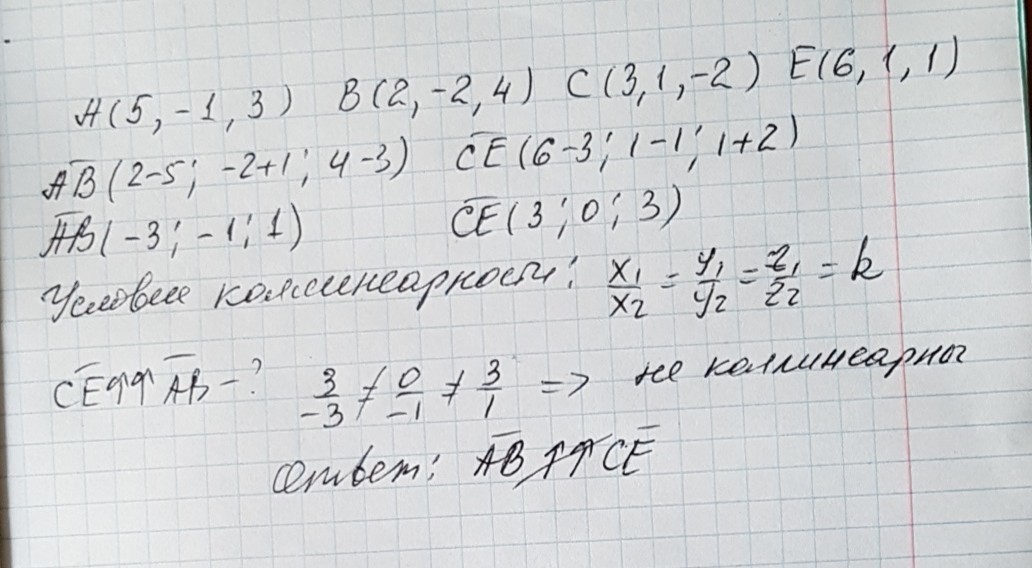 A(5, -1, 3) B(2, -2, 4) C(3, 1, -2) E(6, 1, 1)
A̅B̅(2-5; -2+1; 4-3) C̅E̅(6-3; 1-1; 1+2)
A̅B̅(-3; -1; 1) C̅E̅(3; 0; 3)
Условие коллинеарности: x₁/x₂ = y₁/y₂ = z₁/z₂ = k
C̅E̅⇈A̅B̅ -? 3/-3 ≠ 0/-1 ≠ 3/1 => не коллинеарны
Ответ: A̅B̅ ⇈̸ C̅E̅